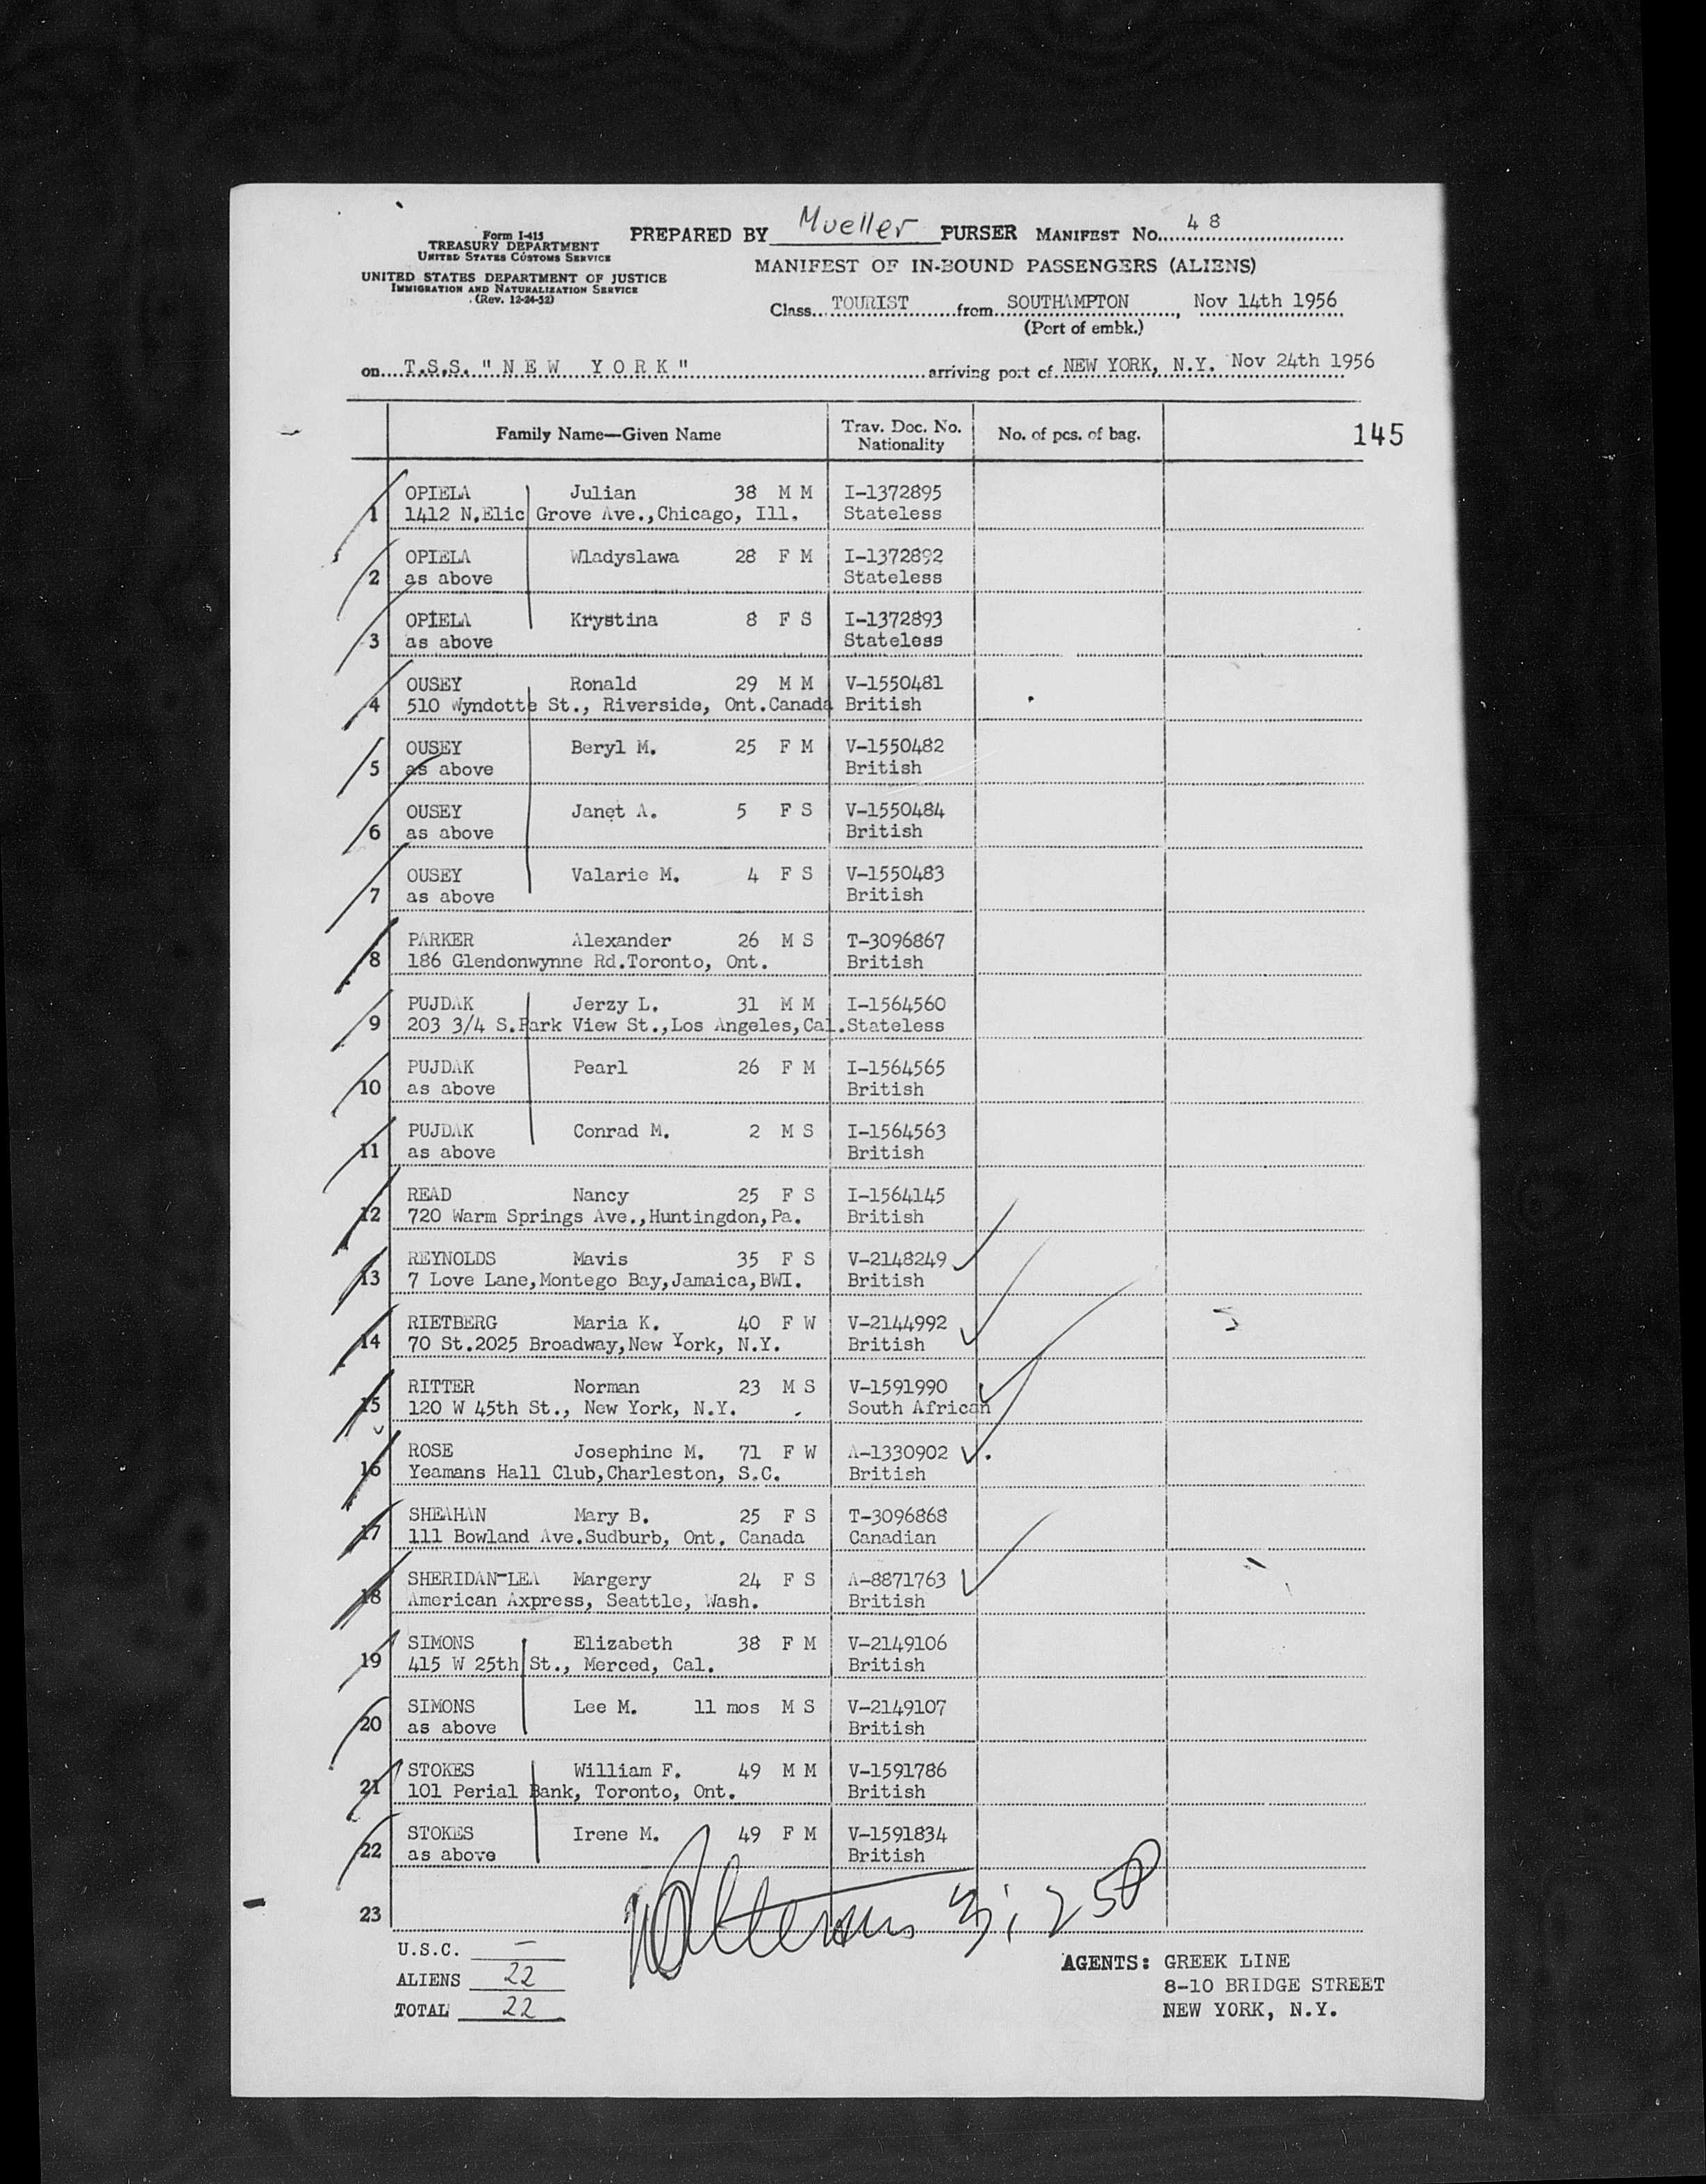 Form I-415
TREASURY DEPARTMENT
UNITED STATES CUSTOMS SERVICE
UNITED STATES DEPARTMENT OF JUSTICE
IMMIGRATION AND NATURALIZATION SERVICE
(Rev. 12-24-52)
PREPARED BY Mueller PURSER MANIFEST No. 48
MANIFEST OF IN-BOUND PASSENGERS (ALIENS)
Class TOURIST from SOUTHAMPTON, Nov 14th 1956
(Port of embk.)
on T.S.S. "NEW YORK" arriving port of NEW YORK, N.Y. Nov 24th 1956
Family Name—Given Name Trav. Doc. No. Nationality No. of pcs. of bag. 145
1 OPIELA Julian 38 M M I-1372895
1412 N.Elic Grove Ave.,Chicago, Ill. Stateless
2 OPIELA Wladyslawa 28 F M I-1372892
as above Stateless
3 OPIELA Krystina 8 F S I-1372893
as above Stateless
4 OUSEY Ronald 29 M M V-1550481
510 Wyndotte St., Riverside, Ont.Canada British
5 OUSEY Beryl M. 25 F M V-1550482
as above British
6 OUSEY Janet A. 5 F S V-1550484
as above British
7 OUSEY Valarie M. 4 F S V-1550483
as above British
8 PARKER Alexander 26 M S T-3096867
186 Glendonwynne Rd.Toronto, Ont. British
9 PUJDAK Jerzy L. 31 M M I-1564560
203 3/4 S.Park View St.,Los Angeles,Cal. Stateless
10 PUJDAK Pearl 26 F M I-1564565
as above British
11 PUJDAK Conrad M. 2 M S I-1564563
as above British
12 READ Nancy 25 F S I-1564145
720 Warm Springs Ave.,Huntingdon,Pa. British
13 REYNOLDS Mavis 35 F S V-2148249
7 Love Lane,Montego Bay,Jamaica,BWI. British
14 RIETBERG Maria K. 40 F W V-2144992
70 St.2025 Broadway,New York, N.Y. British
15 RITTER Norman 23 M S V-1591990
120 W 45th St., New York, N.Y. South African
16 ROSE Josephine M. 71 F W A-1330902
Yeamans Hall Club,Charleston, S.C. British
17 SHEAHAN Mary B. 25 F S T-3096868
111 Bowland Ave.Sudburb, Ont. Canada Canadian
18 SHERIDAN-LEA Margery 24 F S A-8871763
American Axpress, Seattle, Wash. British
19 SIMONS Elizabeth 38 F M V-2149106
415 W 25th St., Merced, Cal. British
20 SIMONS Lee M. 11 mos M S V-2149107
as above British
21 STOKES William F. 49 M M V-1591786
101 Perial Bank, Toronto, Ont. British
22 STOKES Irene M. 49 F M V-1591834
as above British
23
U.S.C. —
ALIENS 22
TOTAL 22
AGENTS: GREEK LINE
8-10 BRIDGE STREET
NEW YORK, N.Y.